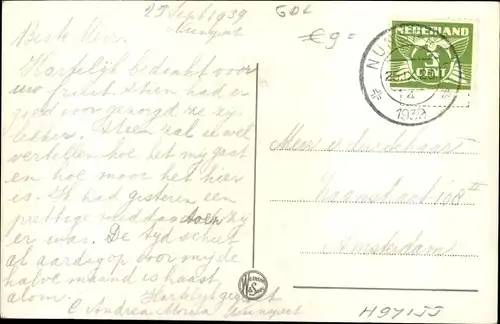 25 Sept 1939
Nunspeet
GDL
€ 9=
NEDERLAND
3
CENT
NUN
1939
Beste Mevr.
Hartelijk bedankt voor
uw fruit. Stien had er
goed voor gezorgd ze zijn
lekker. Stien zal u wel
vertellen hoe het mij gaat
en hoe mooi het hier
is. Ik had gisteren een
prettige middag toen zij
er was. De tijd schiet
al aardig op voor mij de
halve maand is haast
alom. Hartelijk gegroet
C Andrea Nunspeet
Mevr
straat 108 II
Amsterdam
H97155